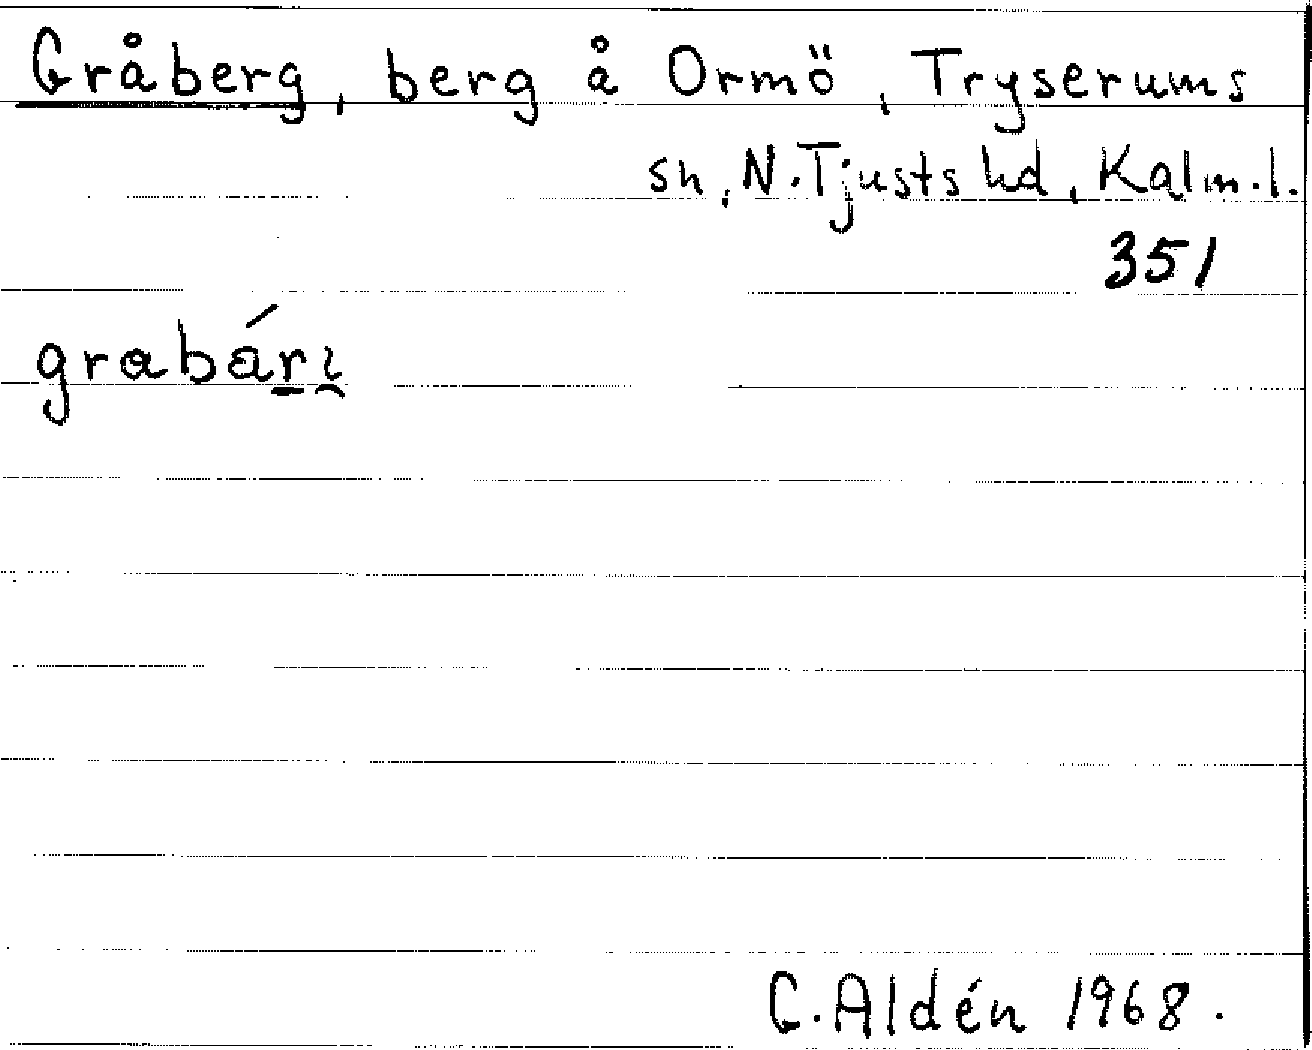 Gråberg, berg å Ormö, Tryserums
sn, N. Tjusts hd, Kalm. l.
351
grabári
G. Aldén 1968.